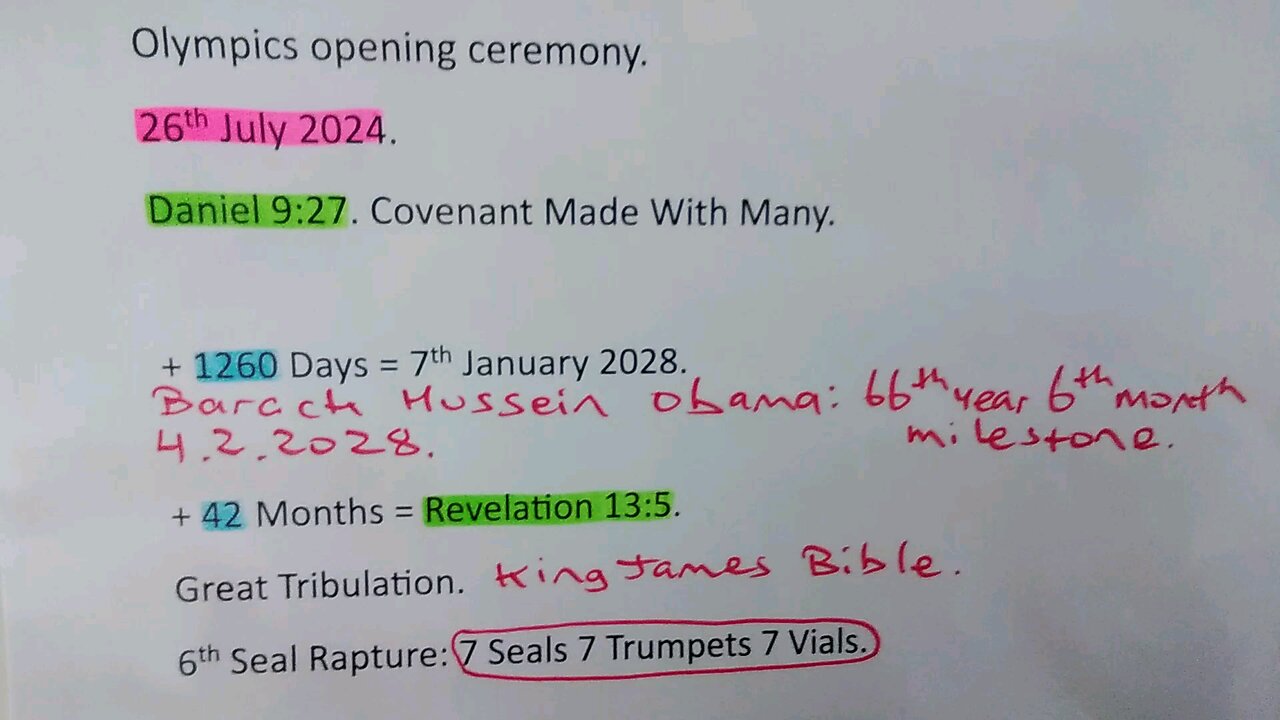 Olympics opening ceremony.
26th July 2024.
Daniel 9:27. Covenant Made With Many.
+ 1260 Days = 7th January 2028.
Barack Hussein Obama: 66th year 6th month
4.2.2028. milestone.
+ 42 Months = Revelation 13:5.
Great Tribulation. King James Bible.
6th Seal Rapture: 7 Seals 7 Trumpets 7 Vials.